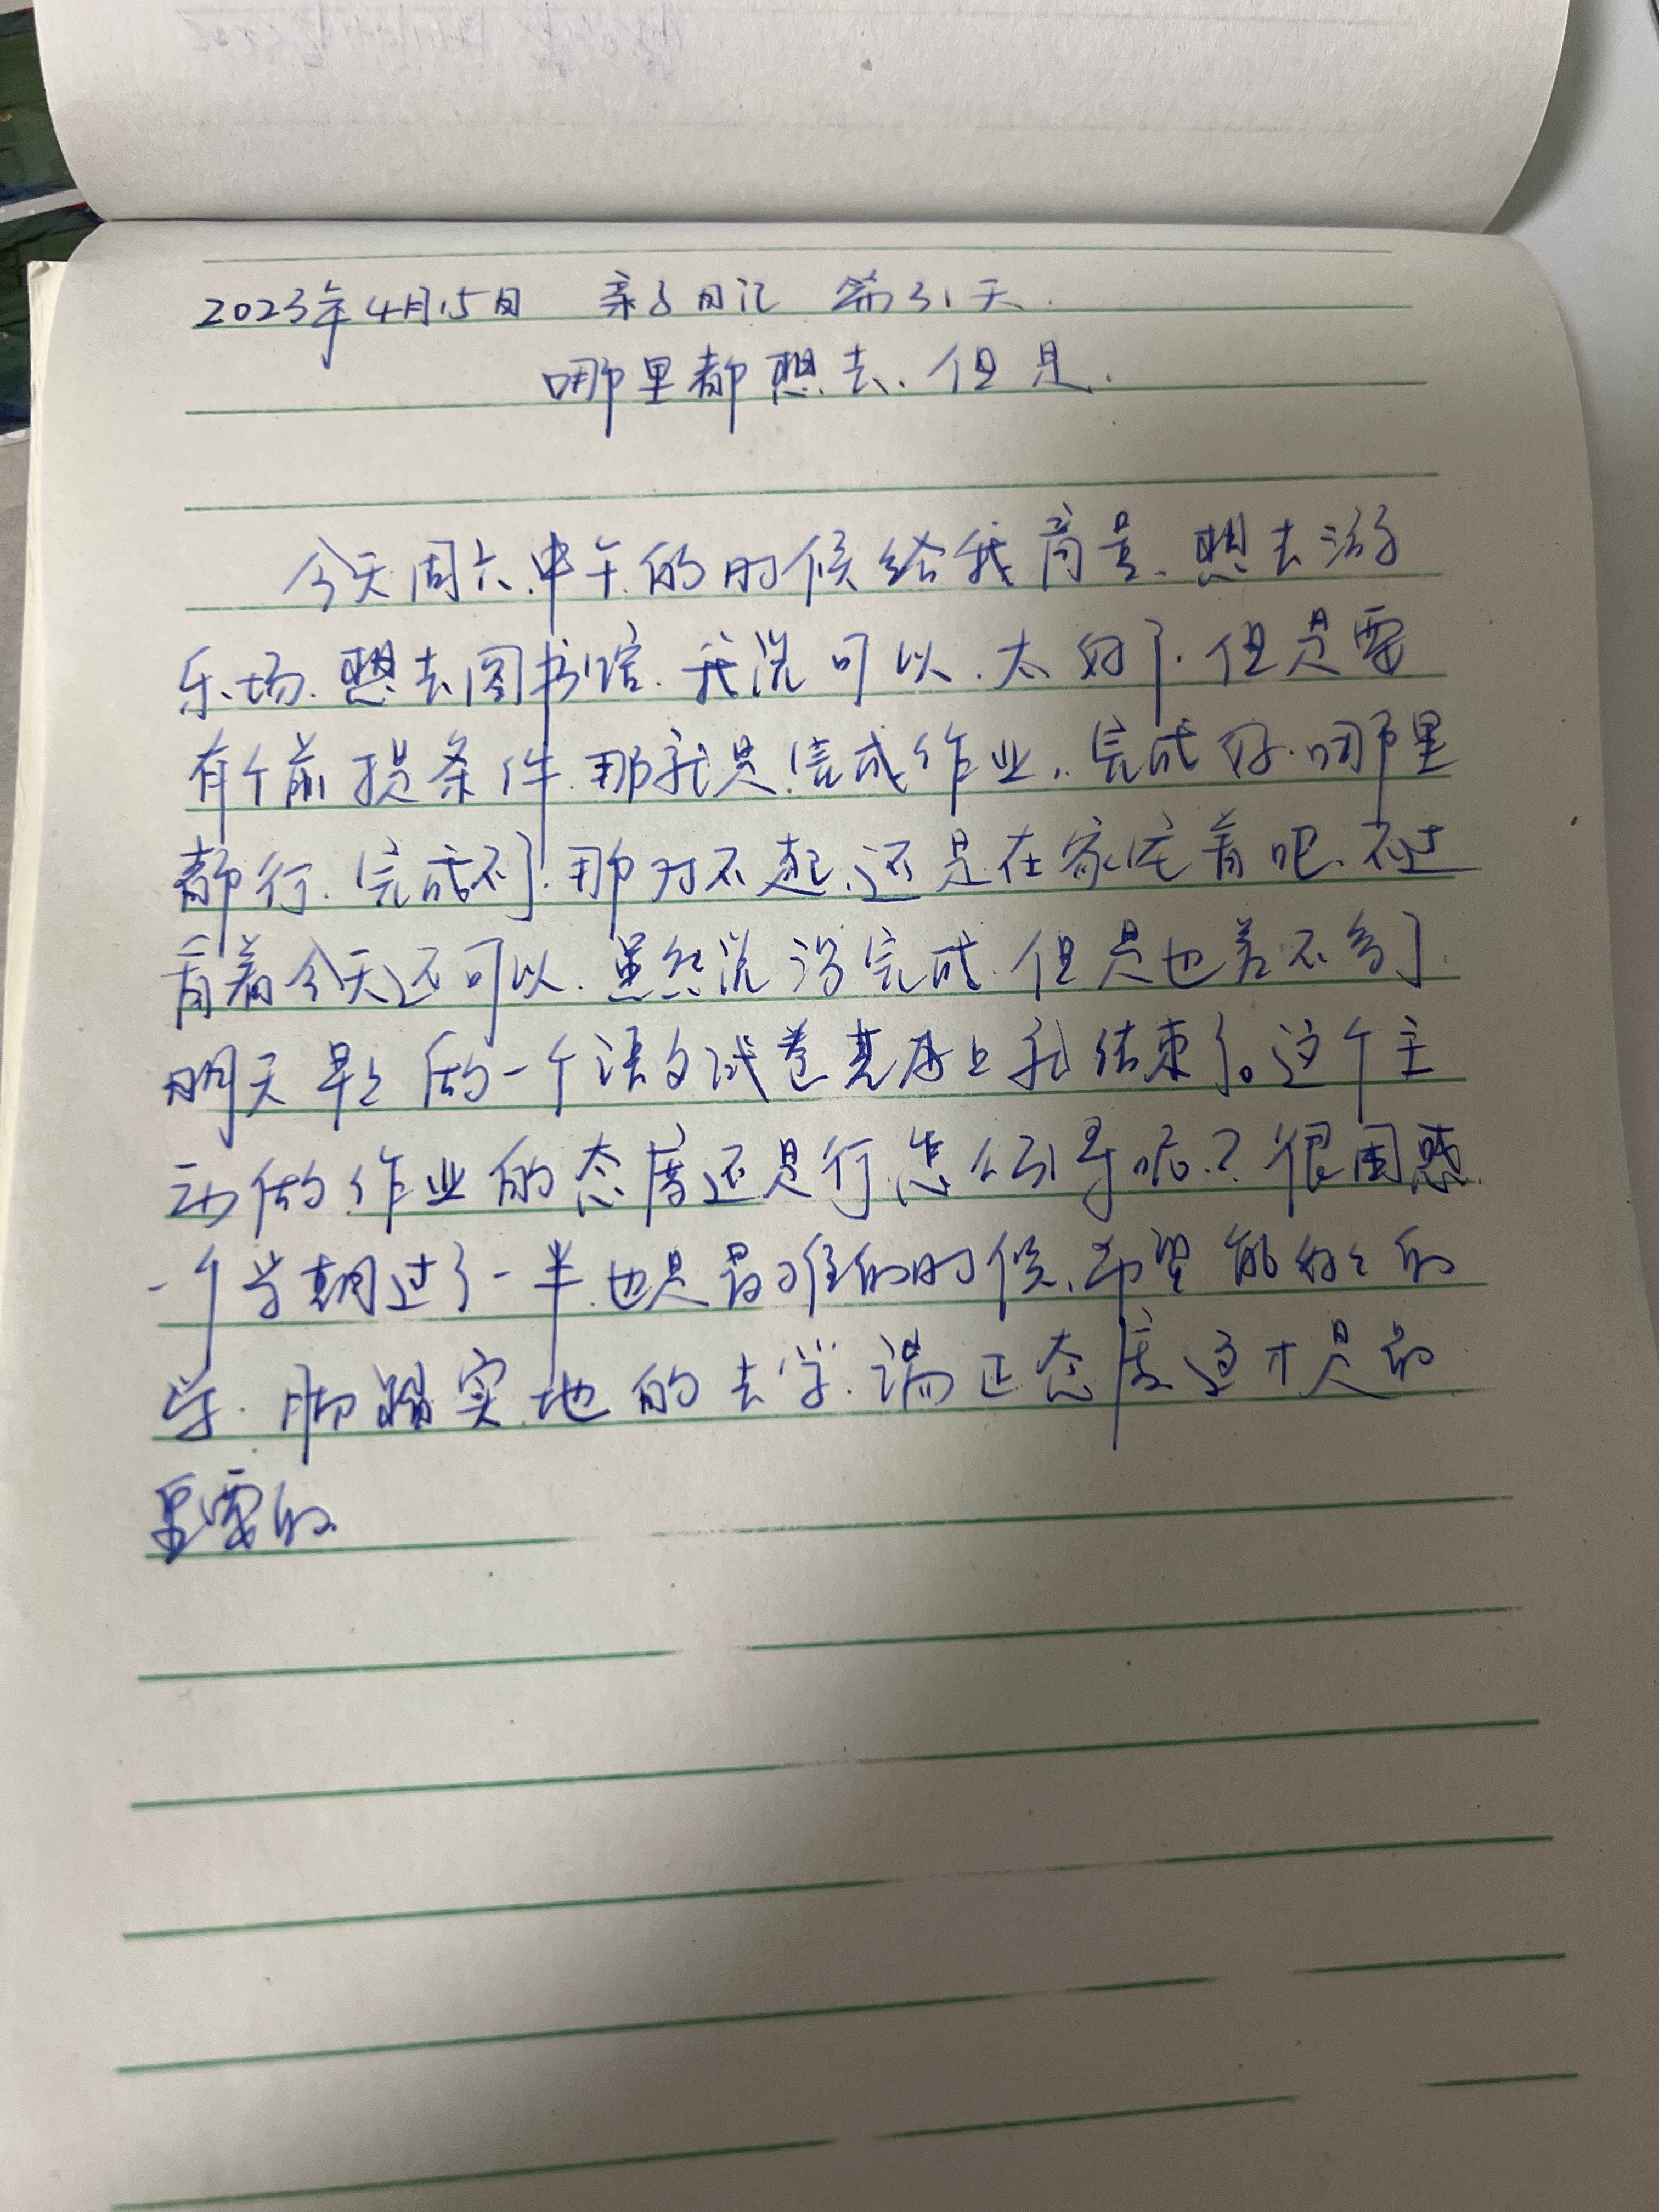 2023年4月15日 亲子日记 第31天.
哪里都想去.但是.
今天周六.中午的时候给我商量.想去游
乐场.想去图书馆.我说可以.太好了.但是要
有个前提条件.那就是完成作业..完成好.哪里
都行.完成不了.那对不起.还是在家宅着吧.不过
看着今天还可以.虽然说没完成.但是也差不多了.
明天早上做一个语文试卷基本上就结束了。这个主
动做作业的态度还是行.怎么引导呢?很困惑.
一个学期过了一半.也是最难的时候.希望能好好的
学.脚踏实地的去学.端正态度这才是最
重要的.